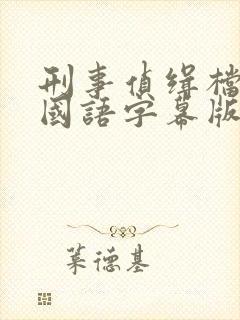 刑事偵缉檔
國語字幕版
莱德基